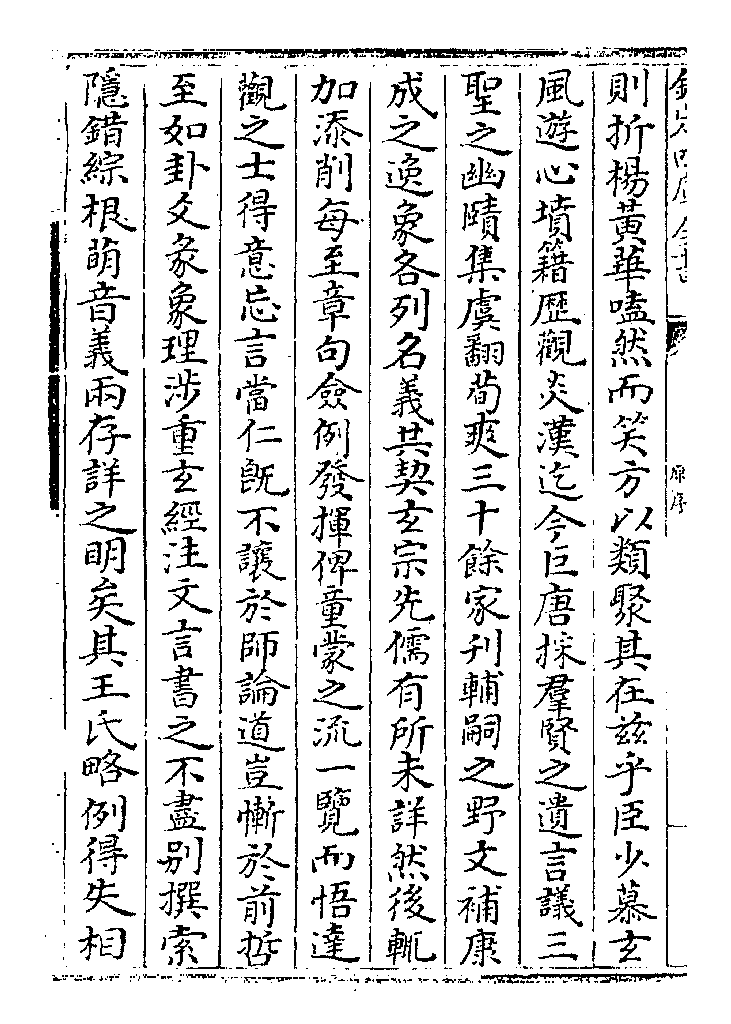 則折楊黃華嗑然而笑方以類聚其在兹乎臣少慕玄
風遊心墳籍歷觀炎漢迄今巨唐採羣賢之遺言議三
聖之幽賾集虞翻荀爽三十餘家刋輔嗣之野文補康
成之逸象各列名義共契玄宗先儒有所未詳然後輒
加添削每至章句僉例發揮俾童蒙之流一覽而悟達
觀之士得意忘言當仁旣不讓於師論道豈慚於前哲
至如卦爻彖象理涉重玄經注文言書之不盡别撰索
隱錯綜根萌音義兩存詳之明矣其王氏略例得失相
原序